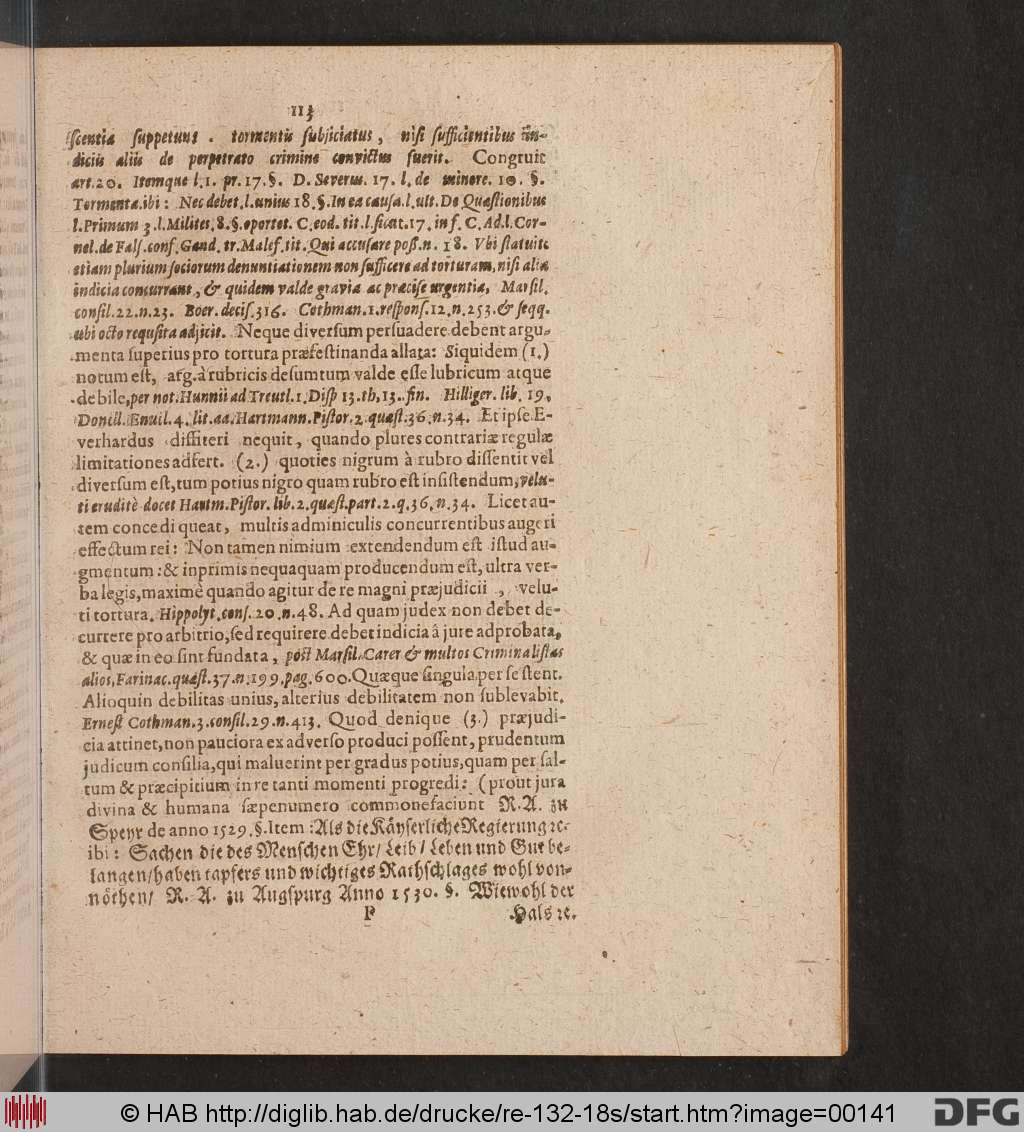 113
scentia suppetunt . tormentis subjiciatus, nisi sufficientibus in-
diciis aliis de perpetrato crimine convictus fuerit. Congruit
art.20. Itemque l.1. pr.17.§. D. Severus. 17. l. de minore. 10. §.
Tormenta.ibi: Nec debet.l.unius 18.§.In ea causa.l.ult.De Quæstionibus
l.Primum 3.l.Milites.8.§.oportet. C.eod.tit.l.sicut.17. in f. C.Ad.l.Cor-
nel.de Fals.conf.Gand.tr.Malef.tit.Qui accusare poß.n. 18. Vbi statuit
etiam plurium sociorum denuntiationem non sufficere ad torturam, nisi alia
indicia concurrant, & quidem valde gravia ac præcise urgentia, Marsil.
consil.22.n.23. Boer.decis.316. Cothman.1.respons.12.n.253.& seqq.
ubi octo requisita adjicit. Neque diversum persuadere debent argu-
menta superius pro tortura præfestinanda allata: Siquidem (1.)
notum est, arg. à rubricis desumtum valde esse lubricum atque
debile, per not. Hunnii ad Treutl.1.Disp 13.th,13..fin. Hilliger. lib. 19.
Donell.Enuil.4.lit.aa.Hartmann.Pistor.2.quæst.36.n.34. Et ipse E-
verhardus diffiteri nequit, quando plures contrariæ regulæ
limitationes adfert. (2.) quoties nigrum à rubro dissentit vel
diversum est, tum potius nigro quam rubro est insistendum, velu-
ti eruditè docet Hautm.Pistor.lib.2.quæst.part.2.q.36.n.34. Licet au-
tem concedi queat, multis adminiculis concurrentibus augeri
effectum rei: Non tamen nimium extendendum est istud au-
gmentum: & inprimis nequaquam producendum est, ultra ver-
ba legis, maximè quando agitur de re magni præjudicii , velu-
ti tortura. Hippolyt.cons.20.n.48. Ad quam judex non debet de-
currere pro arbitrio, sed requirere debet indicia â jure adprobata,
& quæ in eo sint fundata, post Marsil.Carer & multos Criminalistas
alios, Farinac.quæst.37.n.199.pag.600. Quæque singula per se stent.
Alioquin debilitas unius, alterius debilitatem non sublevabit.
Ernest Cothman.3.consil.29.n.413. Quod denique (3.) præjudi-
cia attinet, non pauciora ex adverso produci possent, prudentum
judicum consilia, qui maluerint per gradus potius, quam per sal-
tum & præcipitium in re tanti momenti progredi: (prout jura
divina & humana sæpenumero commonefaciunt R.A. zu
Speyr de anno 1529.§.Item: Als die Käyserliche Regierung ꝛc.
ibi: Sachen die des Menschen Ehr/ Leib/ Leben und Gut be-
langen/haben tapfers und wichtiges Rathschlages wohl von-
nöthen/ R. A. zu Augspurg Anno 1530. §. Wiewohl der
P Hals ꝛc.
© HAB http://diglib.hab.de/drucke/re-132-18s/start.htm?image=00141
DFG